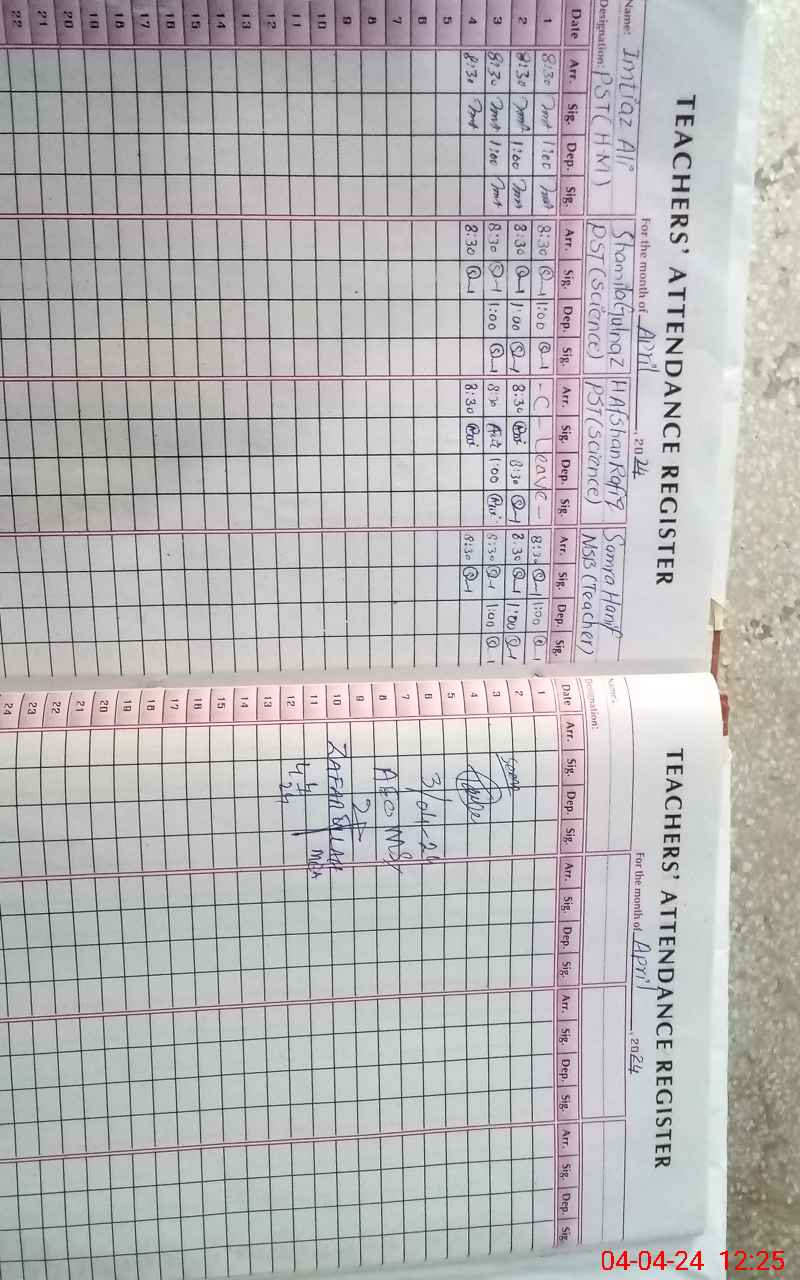 TEACHERS' ATTENDANCE REGISTER
For the month of April, 2024
Name: Imtiaz Ali Shamila Gulnaz H Afshan Rafiq Samra Hanif
Designation: PST (H.M) PST (Science) PST (Science) NSB (Teacher)
Date Arr. Sig. Dep. Sig. Arr. Sig. Dep. Sig. Arr. Sig. Dep. Sig. Arr. Sig. Dep. Sig.
1 8:30 1:00 8:30 1:00 - C - Leave - 8:30 1:00
2 8:30 1:00 8:30 1:00 8:30 8:30 8:30 1:00
3 8:30 1:00 8:30 1:00 8:30 1:00 8:30 1:00
4 8:30 8:30 8:30 8:30
5
6
7
8
9
10
11
12
13
14
15
16
17
18
19
20
21
22
TEACHERS' ATTENDANCE REGISTER
For the month of April, 2024
Name:
Designation:
Date Arr. Sig. Dep. Sig. Arr. Sig. Dep. Sig. Arr. Sig. Dep. Sig. Arr. Sig. Dep. Sig.
1
2
3
4
5
6 3/04-24
7
8
9
10 ZAFAR ULLAH
11 MEA
12 4 4 24
13
14
15
16
17
18
19
20
21
22
23
24
04-04-24 12:25